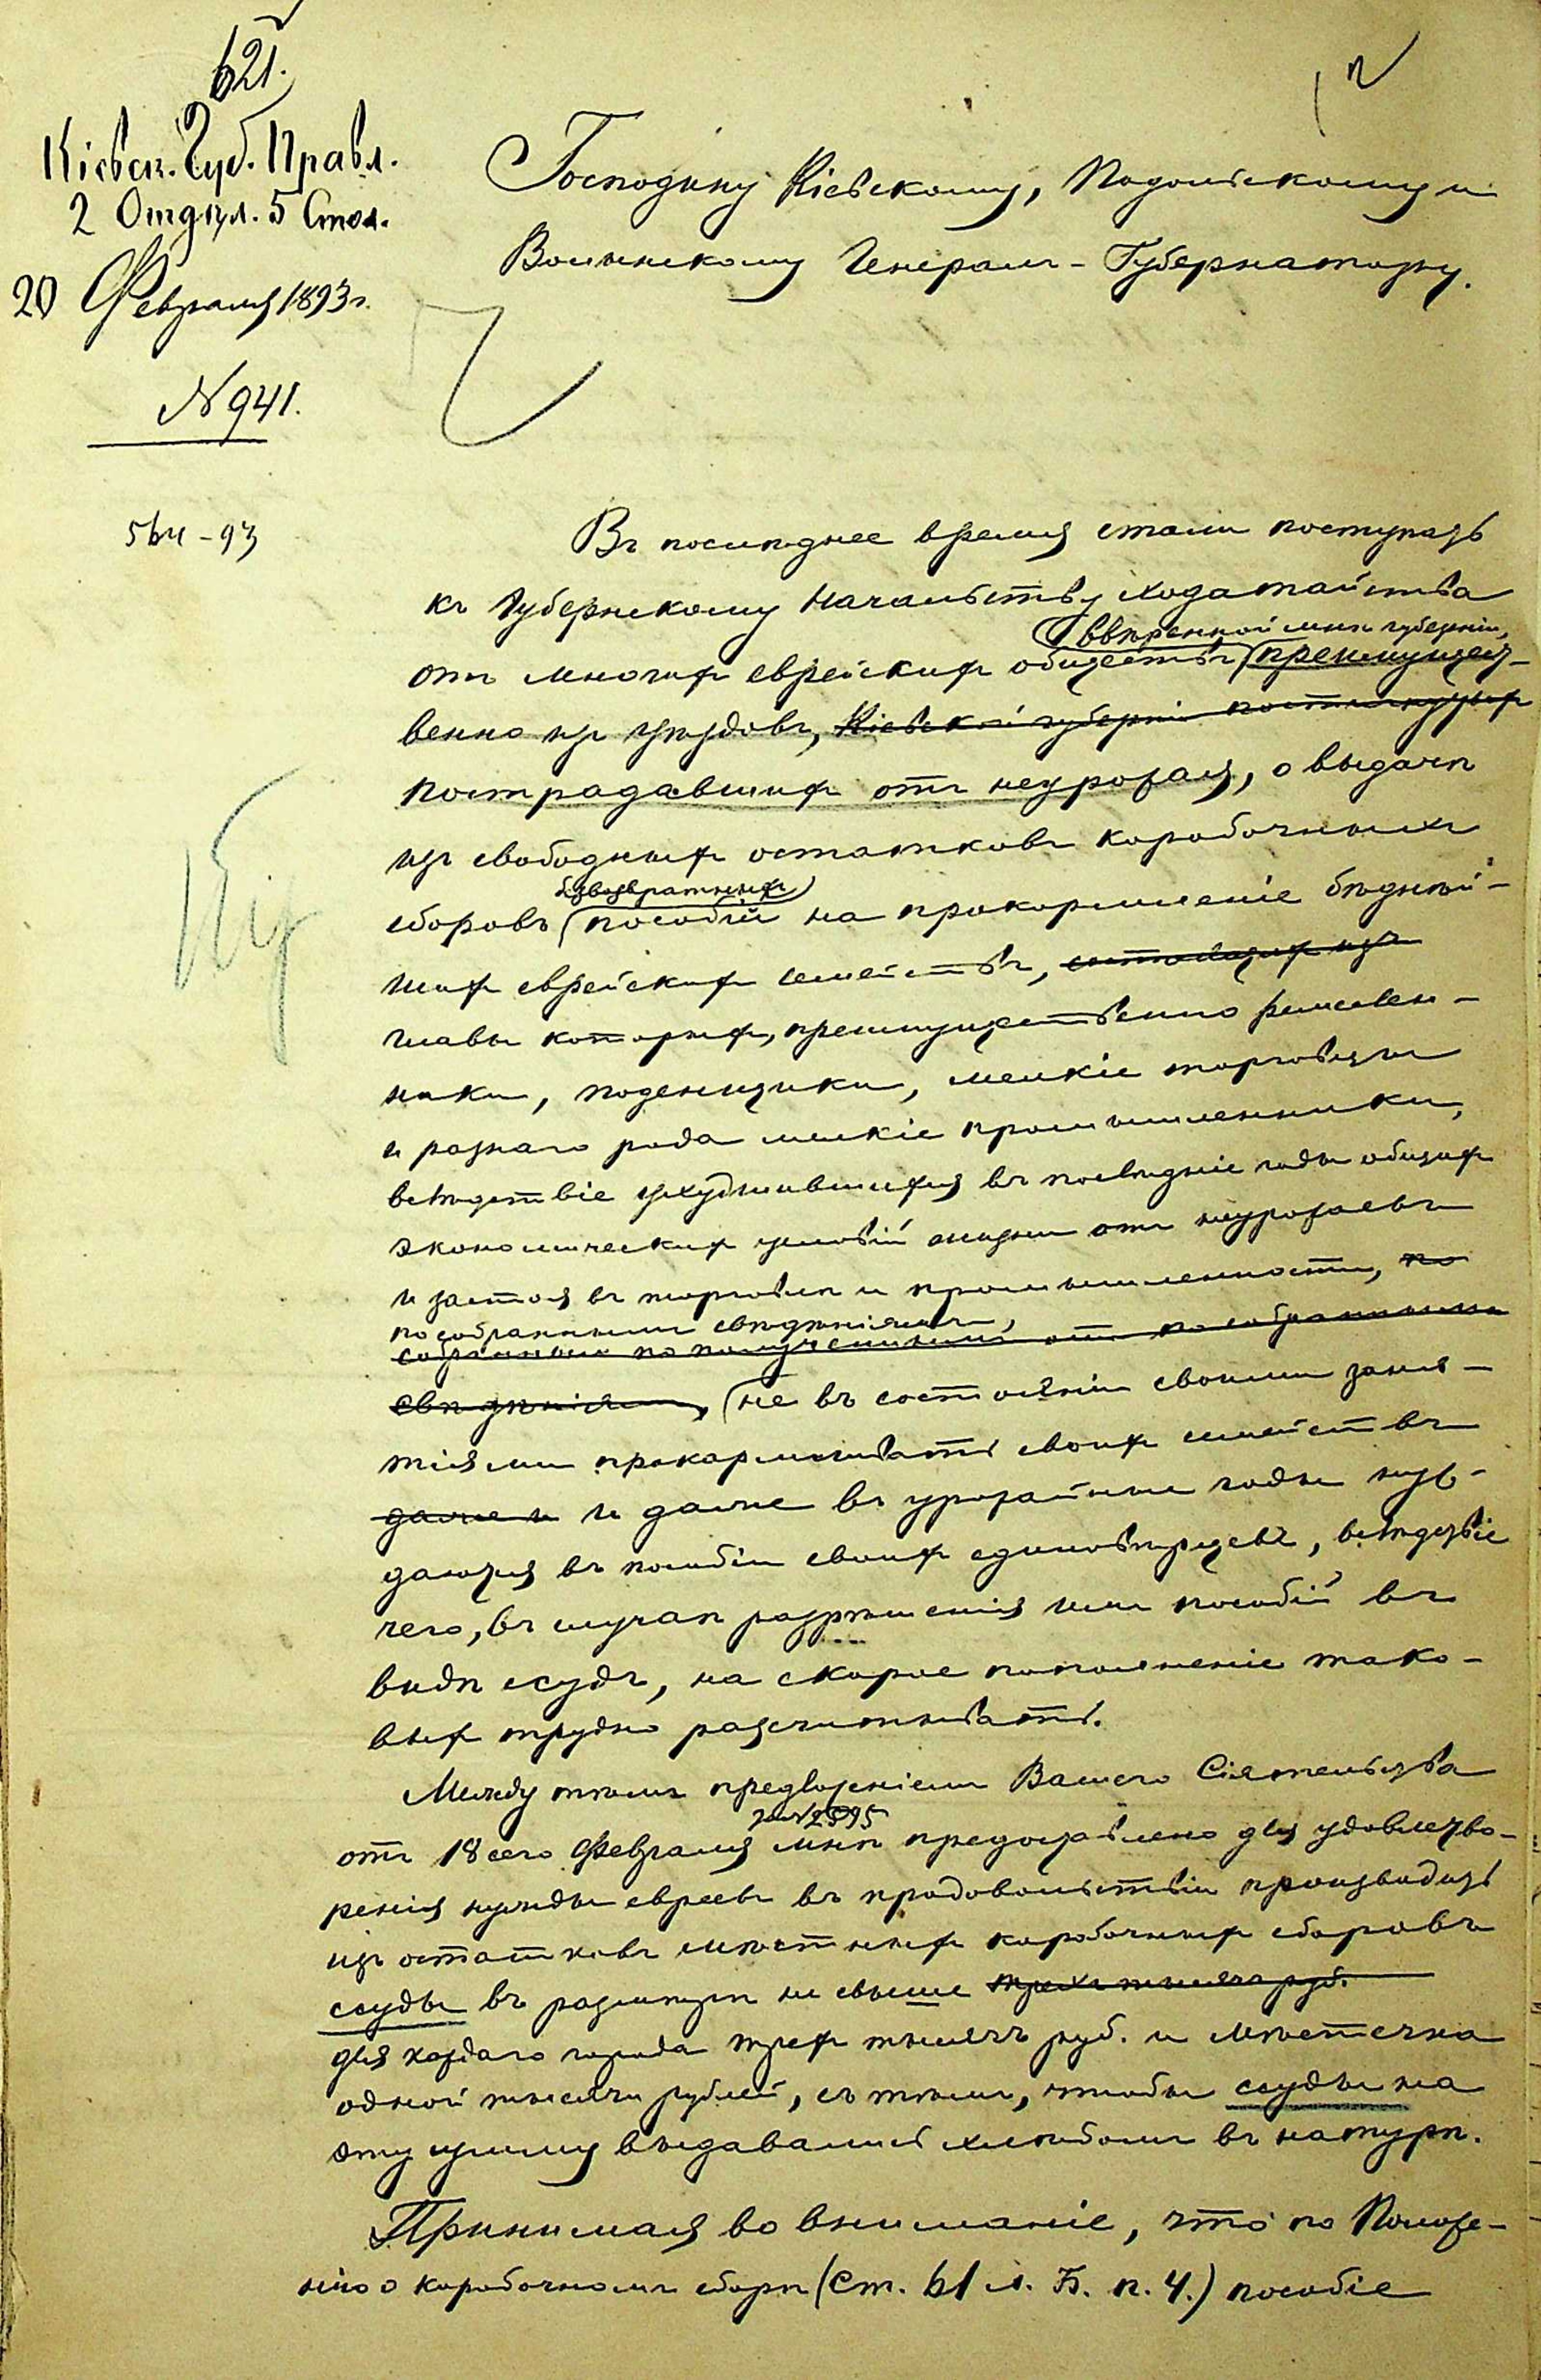 621.
Кіевск. Губ. Правл.
2 Отдѣл. 5 Стол.
20 Февраля 1893 г.
№ 941.
564 - 93
Господину Кіевскому, Подольскому и
Волынскому Генералъ-Губернатору.
Въ послѣднее время стали поступать
къ Губернскому Начальству ходатайства
ввѣренной мнѣ губерніи,
отъ многихъ еврейскихъ обществъ преимущест-
венно изъ уѣздовъ, Кіевской губерніи
пострадавшихъ отъ неурожая, о выдачѣ
изъ свободныхъ остатковъ коробочныхъ
безвозвратныхъ
сборовъ пособій на прокормленіе бѣднѣй-
шихъ еврейскихъ семействъ, состоящихъ изъ
главы которыхъ, преимущественно ремеслен-
ники, поденщики, мелкіе торговцы
и разнаго рода мелкіе промышленники,
вслѣдствіе ухудшившихся въ послѣдніе годы общихъ
экономическихъ условій жизни отъ неурожаевъ
и застоя въ торговлѣ и промышленности, по
по собраннымъ свѣдѣніямъ,
собраннымъ по полученнымъ по собраннымъ
свѣдѣніямъ, не въ состояніи своими заня-
тіями прокармливать своихъ семействъ
даже и и даже въ урожайные годы нуж-
даются въ пособіи своихъ единовѣрцевъ, вслѣдствіе
чего, въ случаѣ разрѣшенія имъ пособій въ
видѣ ссудъ, на скорое пополненіе тако-
выхъ трудно разсчитывать.
Между тѣмъ предложеніемъ Вашего Сіятельства
за № 2595
отъ 18 сего Февраля мнѣ предоставлено для удовлетво-
ренія нужды евреевъ въ продовольствіи производить
изъ остатковъ мѣстныхъ коробочныхъ сборовъ
ссуды въ размѣрѣ не свыше трехъ тысячъ руб.
для каждаго города трехъ тысячъ руб. и мѣстечка
одной тысячи рублей, съ тѣмъ, чтобы ссуды на
эту сумму выдавались хлѣбомъ въ натурѣ.
Принимая во вниманіе, что по Положе-
нію о коробочномъ сборѣ (ст. 61 л. Б. п. 4.) пособіе